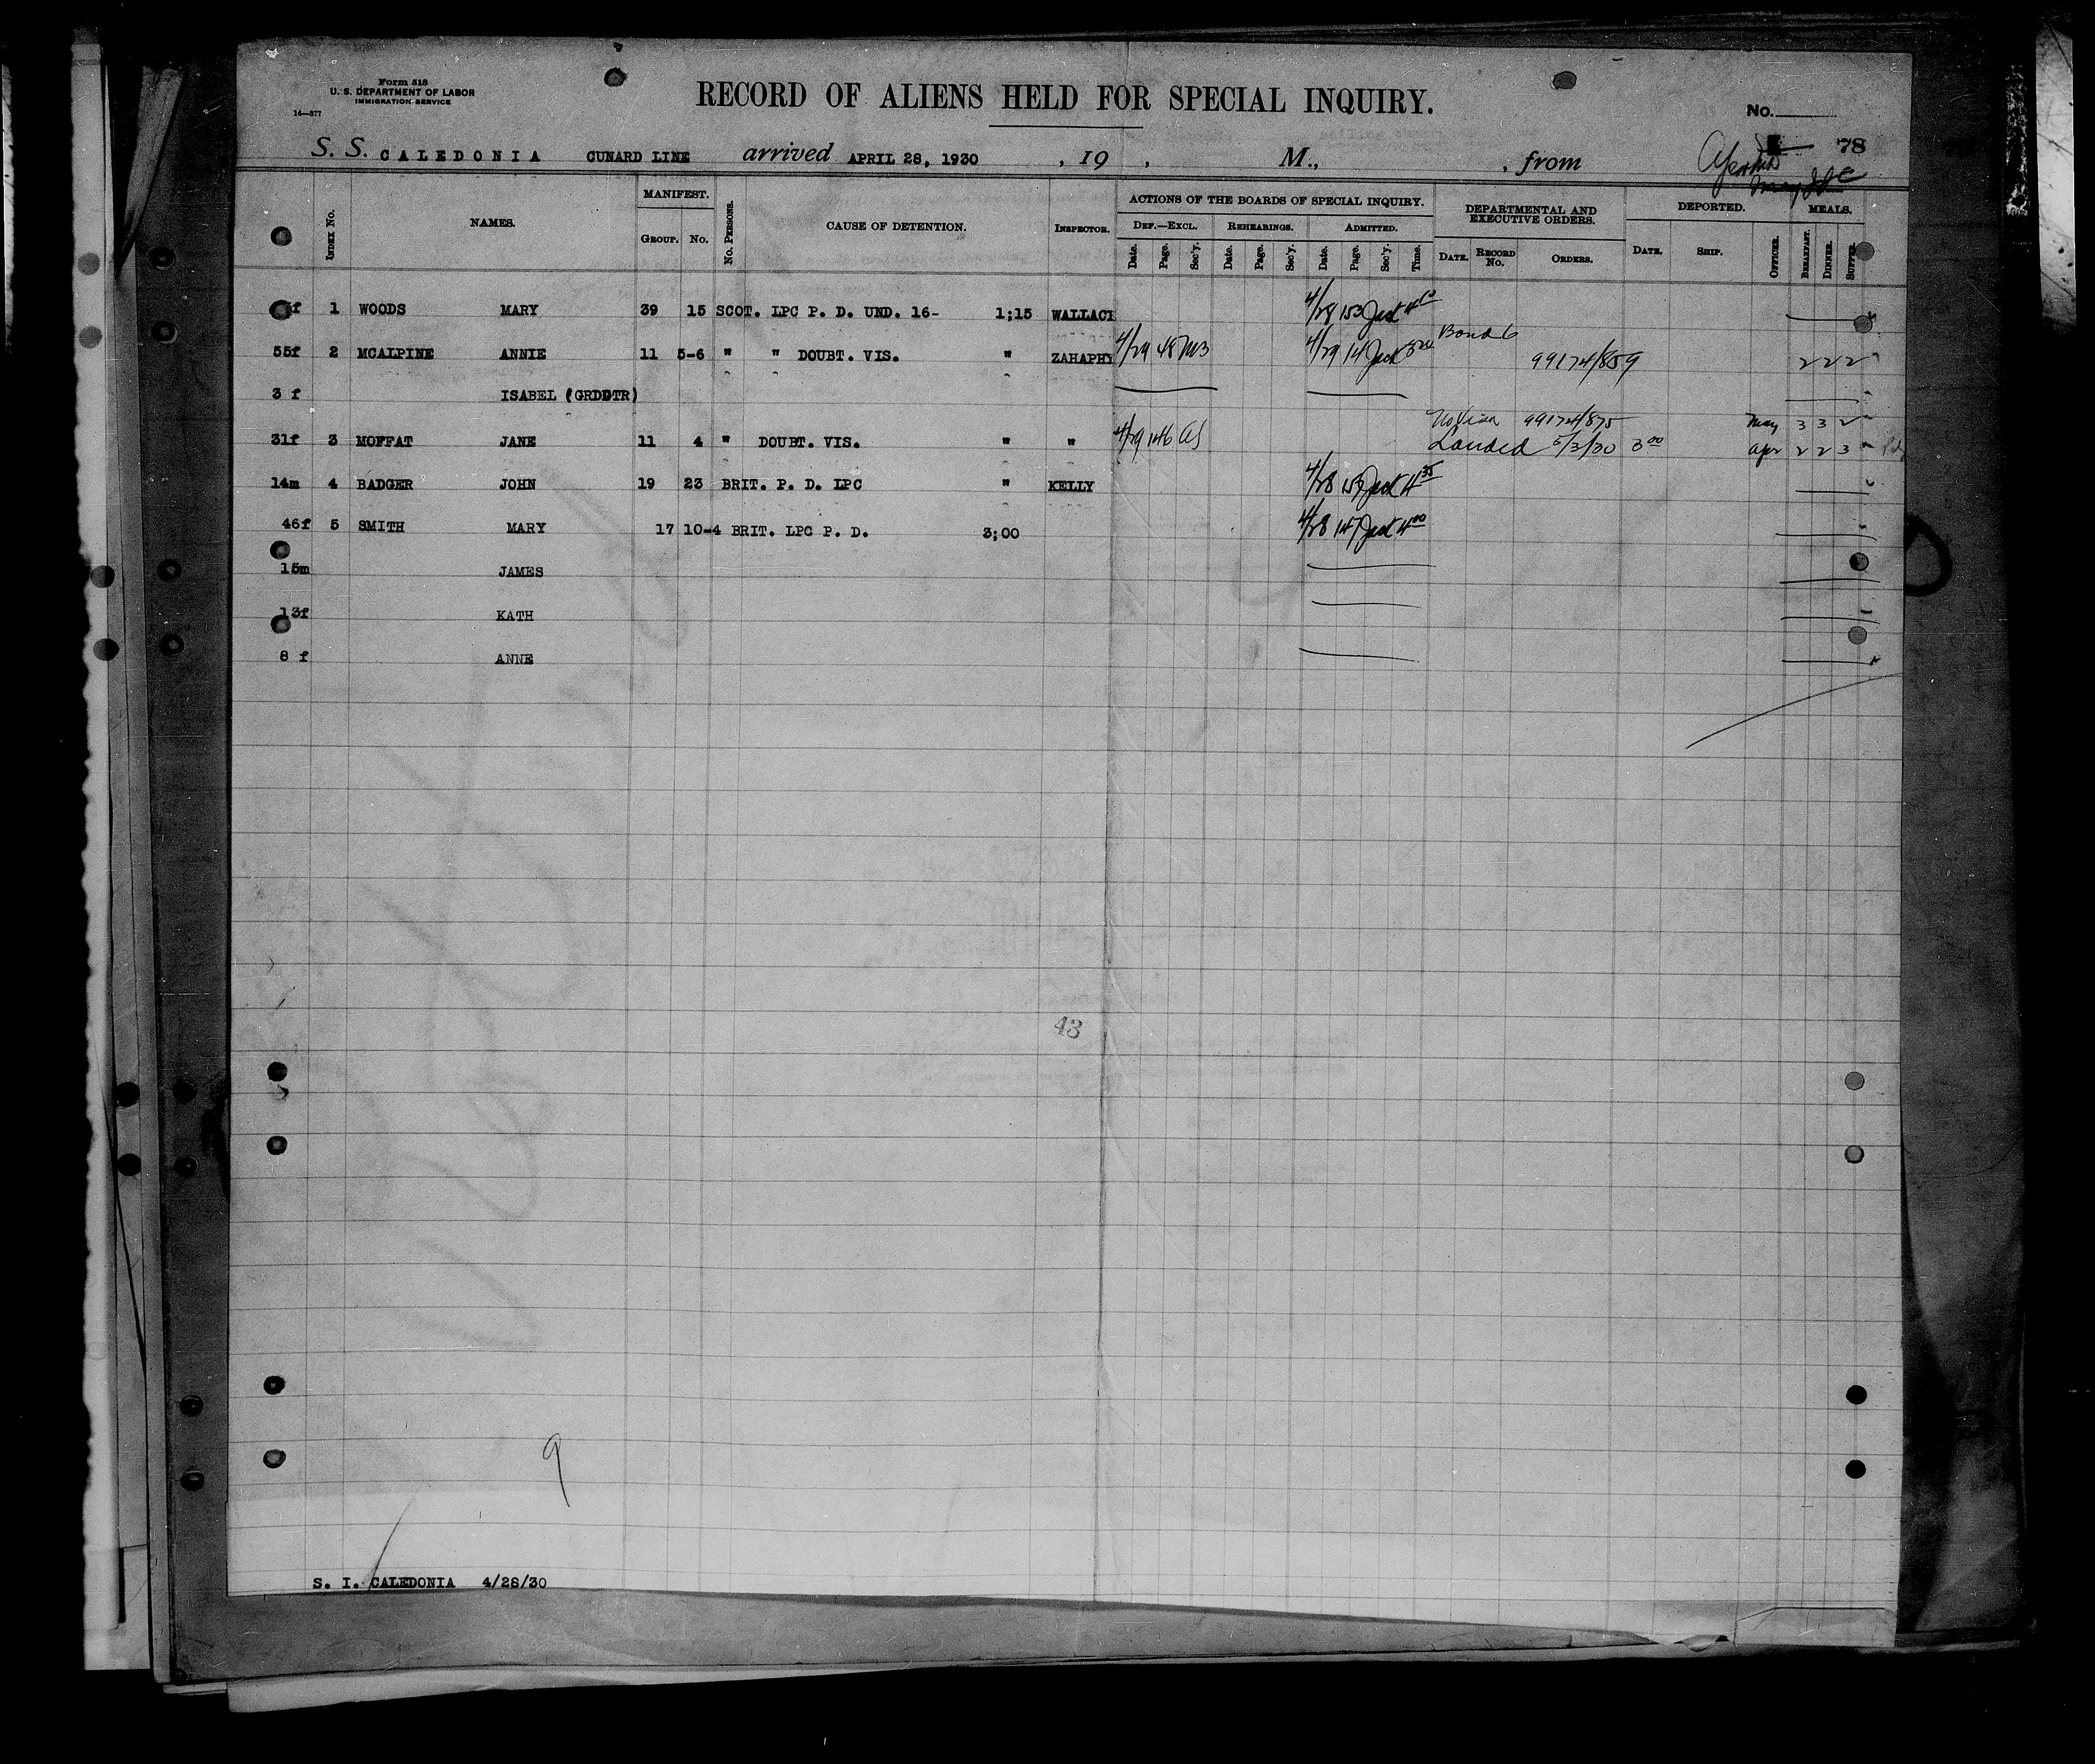 Form 518
U. S. DEPARTMENT OF LABOR
IMMIGRATION SERVICE
14—377
RECORD OF ALIENS HELD FOR SPECIAL INQUIRY.
No.
78
S. S. CALEDONIA CUNARD LINE arrived APRIL 28, 1930 , 19 , M., , from
INDEX No. NAMES. MANIFEST. GROUP. No. No. PERSONS. CAUSE OF DETENTION. INSPECTOR. ACTIONS OF THE BOARDS OF SPECIAL INQUIRY. DEF.—EXCL. Date. Page. Sec'y. REHEARINGS. Date. Page. Sec'y. ADMITTED. Date. Page. Sec'y. Time. DEPARTMENTAL AND EXECUTIVE ORDERS. DATE. RECORD No. ORDERS. DEPORTED. DATE. SHIP. OFFICER. MEALS. BREAKFAST. DINNER. SUPPER.
f 1 WOODS MARY 39 15 SCOT. LPC P. D. UND. 16- 1;15 WALLACE 4/28 153 Jack 4 10
55f 2 MCALPINE ANNIE 11 5-6 " " DOUBT. VIS. " ZAHAPHY 4/29 48 MB 4/29 14 Jack Bond 6 99174/859 2 2 2
3 f ISABEL (GRDDTR)
99174/875 May 3 3 2
31f 3 MOFFAT JANE 11 4 " DOUBT. VIS. " " 4/29 146 Landed 5/3/30 3 00 Apr 2 2 3
14m 4 BADGER JOHN 19 23 BRIT. P. D. LPC " KELLY 4/28 Jack 4 35
46f 5 SMITH MARY 17 10-4 BRIT. LPC P. D. 3;00 4/28 147 Jack 4 00
15m JAMES
13f KATH
8 f ANNE
43
9
S. I. CALEDONIA 4/28/30